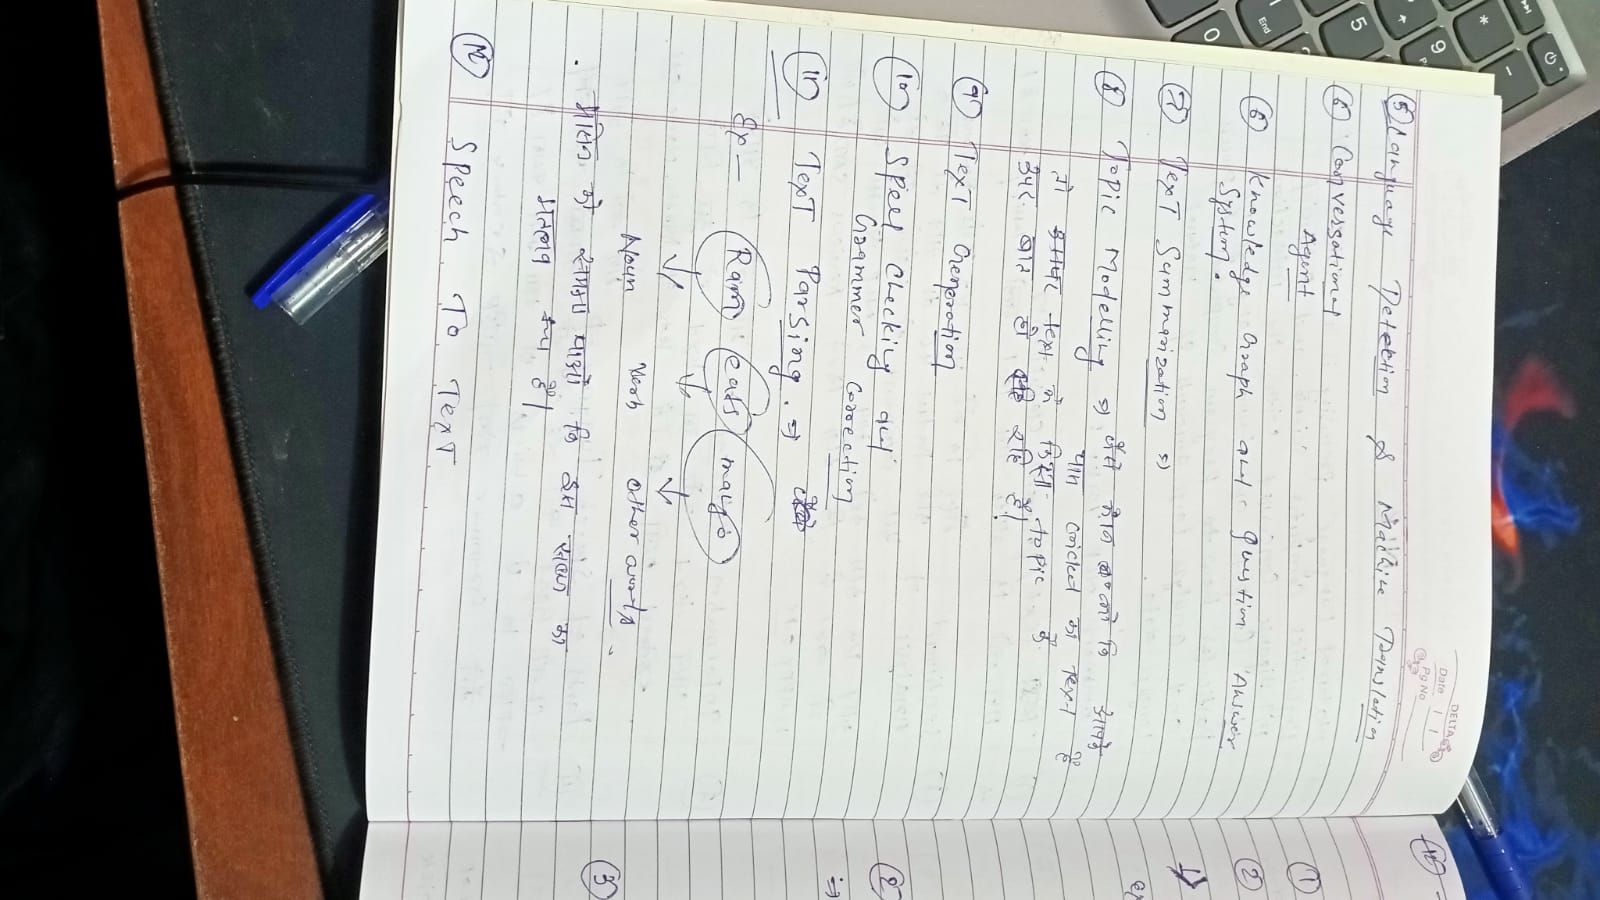 DELTA
Date
Pg No
⑤ Language Detection & Machine Translation
⑥ Conversational
Agent
⑥ Knowledge Graph and Question Answer
System.
⑦ Text Summarization ⇒
⑧ Topic Modelling ⇒ जैसे मान लो कि आपके
पास cricket का Text है
तो आपका text में किस topic के
उपर बात हो रही है।
⑨ Text Generation
⑩ Spell Checking and
Grammer Correction
⑪ Text Parsing. ⇒
Ex- Ram eats mango
Noun Verb other words.
मशीन को समझा पाओ कि इस वाक्य का
मतलब क्या है।
⑫ Speech To Text
①
②
②
③
0
End
5
9
*
-